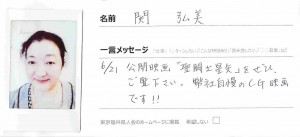 名前 関 弘美
一言メッセージ
6/21 公開映画「聖闘士星矢」をぜひ、
ご覧下さい。弊社自慢のCG映画
です!!
東京福井県人会のホームページに掲載 希望しない